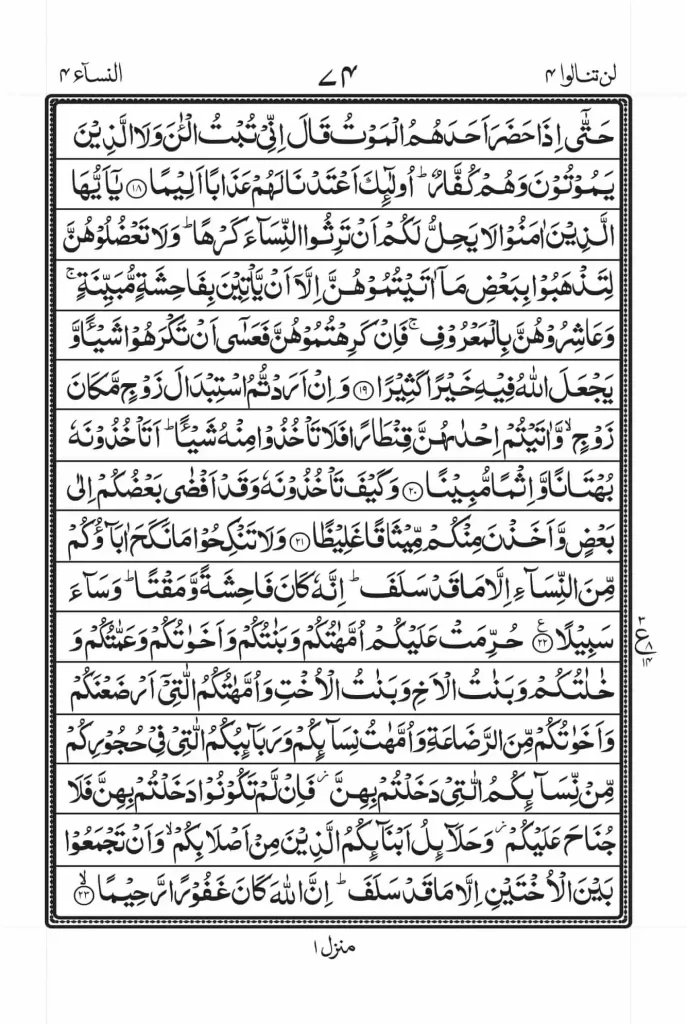 لن تنالوا ۴ ۷۴ النسآء ۴
حَتّٰۤى اِذَا حَضَرَ اَحَدَهُمُ الْمَوْتُ قَالَ اِنِّیْ تُبْتُ الْـٰٔنَ وَلَا الَّذِیْنَ
یَمُوْتُوْنَ وَهُمْ كُفَّارٌ ؕ اُولٰٓىِٕكَ اَعْتَدْنَا لَهُمْ عَذَابًا اَلِیْمًا ﴿۱۸﴾ یٰۤاَیُّهَا
الَّذِیْنَ اٰمَنُوْا لَا یَحِلُّ لَكُمْ اَنْ تَرِثُوا النِّسَآءَ كَرْهًا ؕ وَلَا تَعْضُلُوْهُنَّ
لِتَذْهَبُوْا بِبَعْضِ مَاۤ اٰتَیْتُمُوْهُنَّ اِلَّاۤ اَنْ یَّاْتِیْنَ بِفَاحِشَةٍ مُّبَیِّنَةٍ ۚ
وَعَاشِرُوْهُنَّ بِالْمَعْرُوْفِ ۚ فَاِنْ كَرِهْتُمُوْهُنَّ فَعَسٰۤى اَنْ تَكْرَهُوْا شَیْـًٔا وَّ
یَجْعَلَ اللّٰهُ فِیْهِ خَیْرًا كَثِیْرًا ﴿۱۹﴾ وَاِنْ اَرَدْتُّمُ اسْتِبْدَالَ زَوْجٍ مَّكَانَ
زَوْجٍ ۙ وَّاٰتَیْتُمْ اِحْدٰىهُنَّ قِنْطَارًا فَلَا تَاْخُذُوْا مِنْهُ شَیْـًٔا ؕ اَتَاْخُذُوْنَهٗ
بُهْتَانًا وَّاِثْمًا مُّبِیْنًا ﴿۲۰﴾ وَكَیْفَ تَاْخُذُوْنَهٗ وَقَدْ اَفْضٰى بَعْضُكُمْ اِلٰى
بَعْضٍ وَّاَخَذْنَ مِنْكُمْ مِّیْثَاقًا غَلِیْظًا ﴿۲۱﴾ وَلَا تَنْكِحُوْا مَا نَكَحَ اٰبَآؤُكُمْ
مِّنَ النِّسَآءِ اِلَّا مَا قَدْ سَلَفَ ؕ اِنَّهٗ كَانَ فَاحِشَةً وَّمَقْتًا ؕ وَسَآءَ
سَبِیْلًا ﴿۲۲﴾ حُرِّمَتْ عَلَیْكُمْ اُمَّهٰتُكُمْ وَبَنٰتُكُمْ وَاَخَوٰتُكُمْ وَعَمّٰتُكُمْ وَ
۳ ع ۸ ۱۴
خٰلٰتُكُمْ وَبَنٰتُ الْاَخِ وَبَنٰتُ الْاُخْتِ وَاُمَّهٰتُكُمُ الّٰتِیْۤ اَرْضَعْنَكُمْ
وَاَخَوٰتُكُمْ مِّنَ الرَّضَاعَةِ وَاُمَّهٰتُ نِسَآىِٕكُمْ وَرَبَآىِٕبُكُمُ الّٰتِیْ فِیْ حُجُوْرِكُمْ
مِّنْ نِّسَآىِٕكُمُ الّٰتِیْ دَخَلْتُمْ بِهِنَّ ؗ فَاِنْ لَّمْ تَكُوْنُوْا دَخَلْتُمْ بِهِنَّ فَلَا
جُنَاحَ عَلَیْكُمْ ؗ وَحَلَآىِٕلُ اَبْنَآىِٕكُمُ الَّذِیْنَ مِنْ اَصْلَابِكُمْ ۙ وَاَنْ تَجْمَعُوْا
بَیْنَ الْاُخْتَیْنِ اِلَّا مَا قَدْ سَلَفَ ؕ اِنَّ اللّٰهَ كَانَ غَفُوْرًا رَّحِیْمًا ۙ﴿۲۳﴾
منزل ۱